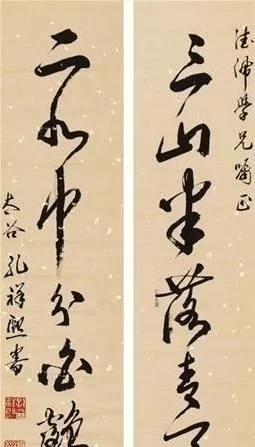 學兄囑正
三山半落青
二水中分白鷺
太谷孔祥熙書